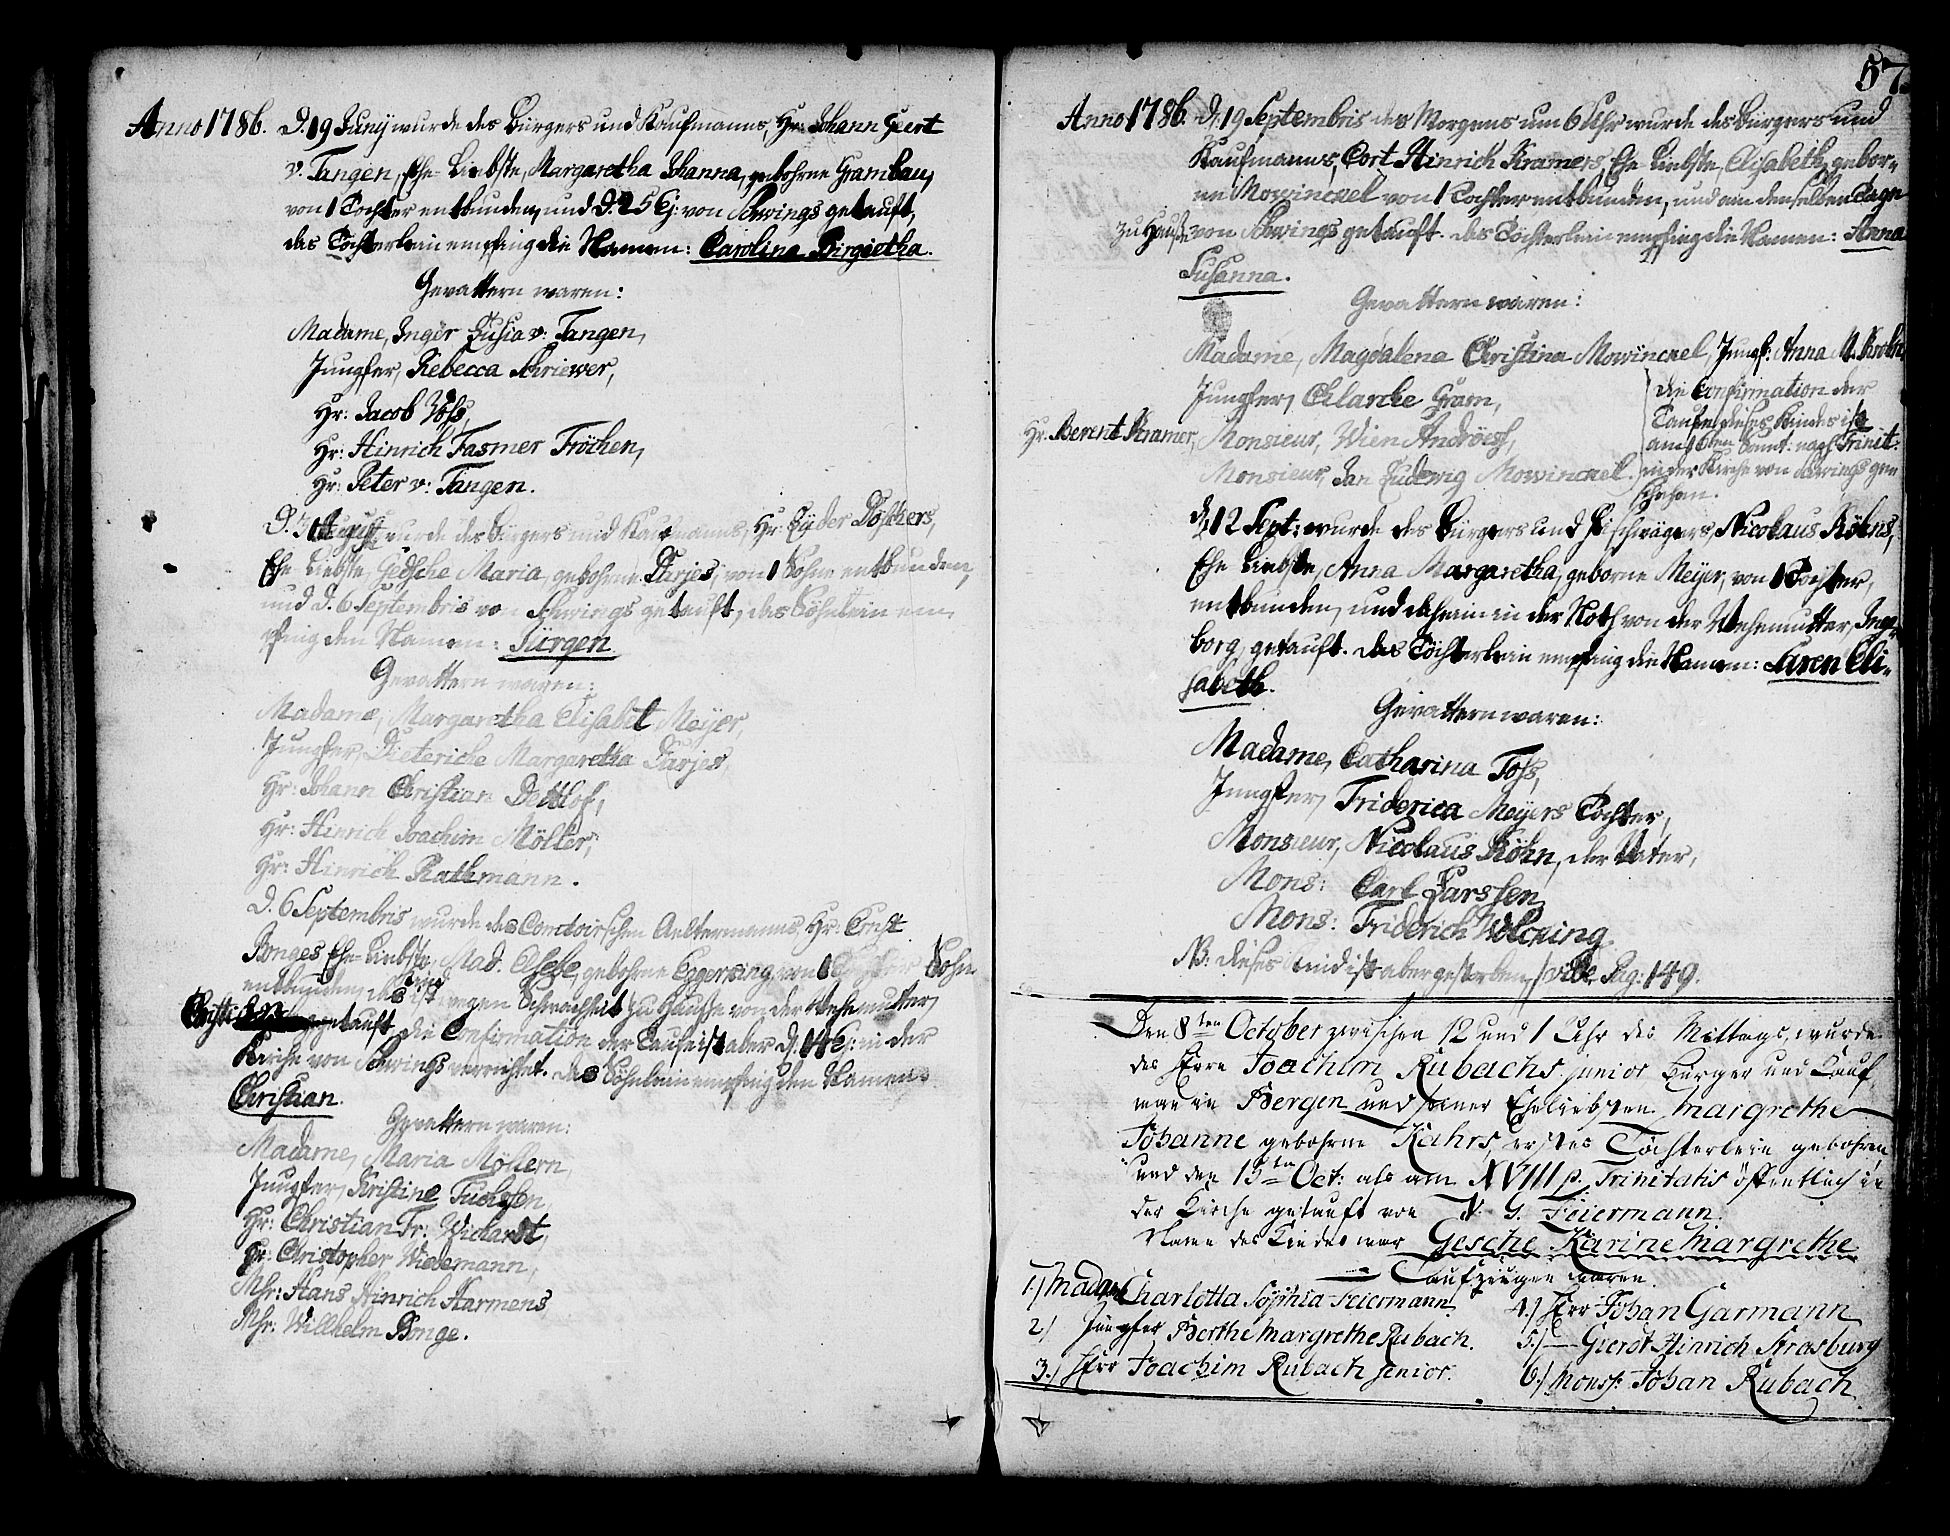 Anno 1786. D. 19 Junij wurde des Bürgers und Kaufmanns, Hr: Johann Geert
v. Tangen, Ehe-Liebste, Margaretha Johanna, gebohrne Grambau,
von 1 Tochter entbunden, und d. 25 Ej: von Schwings getauft,
das Töchterlein empfing die Namen: Carolina Birgietha.
Gevattern waren:
Madame, Inger Lusia v: Tangen,
Jungfer, Rebecca Schriewer,
Hr: Jacob Voss,
Hr: Hinrich Fasmer Fröchen,
Hr: Peter v: Tangen.
D. 31 August wurde des Bürgers und Kaufmanns, Hr: Lüder Döschers,
Ehe-Liebste, Gedsche Maria, gebohrne Darjes, von 1 Sohne entbunden,
und d. 6 Septembris von Schwings getauft, das Söhnlein em-
pfing den Namen: Jürgen
Gevattern waren:
Madame, Margaretha Elisabet Meyer,
Jungfer, Dietericke Margaretha Darjes,
Hr: Johann Christian Dettlof,
Hr: Hinrich Joachim Möller,
Hr: Hinrich Rathmann.
D. 6 Septembris wurde des Contoirschen Aeltermanns, Hr: Ernst
Bonges Ehe-Liebste, Mad. Elsebe, gebohrne Eggersing, von 1 Sohn
entbunden, das ist wegen Schwachheit zu Hause von der Wehemutter,
getauft, die Confirmation der Taufe ist aber d. 14 Ej: in der
Kirche von Schwings verrichtet. das Söhnlein empfing den Namen:
Christian.
Gevattern waren:
Madame, Maria Möllern,
Jungfer, Kristine Tuchsen,
Hr: Christian Fr: Wichardt,
Hr: Christopher Wiedemann,
Mhr: Hans Hinrich Harmens
Mhr: Willhelm Bonge.
57.
Anno 1786. D. 19 Septembris des Morgens um 6 Uhr wurde des Bürgers und
Kaufmanns, Cort Hinrich Kramers, Ehe-Liebste, Elisabeth, gebor-
ne Mowinckel von 1 Tochter entbunden, und am denselben Tage
zu Hause von Schwings getauft. das Töchterlein empfing die Namen: Anna
Susanna.
Gevattern waren:
Madame, Magdalena Christina Mowinckel, Jungf: Anna M.
Jungfer, Chlarcke Gram,
Hr: Berent Kramer, Monsieur, Wien Andröes,
Monsieur, Jan Ludewig Mowinckel.
die Confirmation der
Taufe dieses Kindes ist
am 16ten Sont: nach Trinit:
in der Kirche von Schwings ge-
schehen.
d. 12 Sept: wurde des Bürgers und Nicolaus Köhns,
Ehe Liebste, Anna Margaretha, geborne Meyer, von 1 Tochter,
entbunden, und daheim in der Noth von der Wehemutter, Inge-
borg, getauft. das Töchterlein empfing die Namen: Karen Eli-
sabeth.
Gevattern waren:
Madame, Catharina Foss,
Jungfer, Friderica Meyers Tochter,
Monsieur, Nicolaus Köhn, der Vater,
Mons: Carl Larssen
Mons: Friderich Wolcning.
NB: dieses Kind ist aber gestorben, vide Pag: 149.
Den 8ten October zwischen 12 und 1 Uhr des Mittags, wurde
des Herrn Joachim Rubachs junior Bürger und Kauf
man in Bergen und seiner Eheliebsten Margrethe
Johanne gebohrne Kahrs, erstes Töchterlein gebohren,
und den 15ten Oct: als am XVIII p. Trinitatis öffentlich in
der Kirche getauft von N. G. Feiermann.
Name des Kindes war Gesche Karine Margrethe
Taufzeugen waren.
1.) Madame Charlotta Sophia Feiermann
2.) Jungfer Berthe Margrethe Rubach.
3.) Herr Joachim Rubach senior.
4.) Herr Johan Garmann
5.) — Gierdt Hinrich Strasburg
6.) Monsr: Johan Rubach.